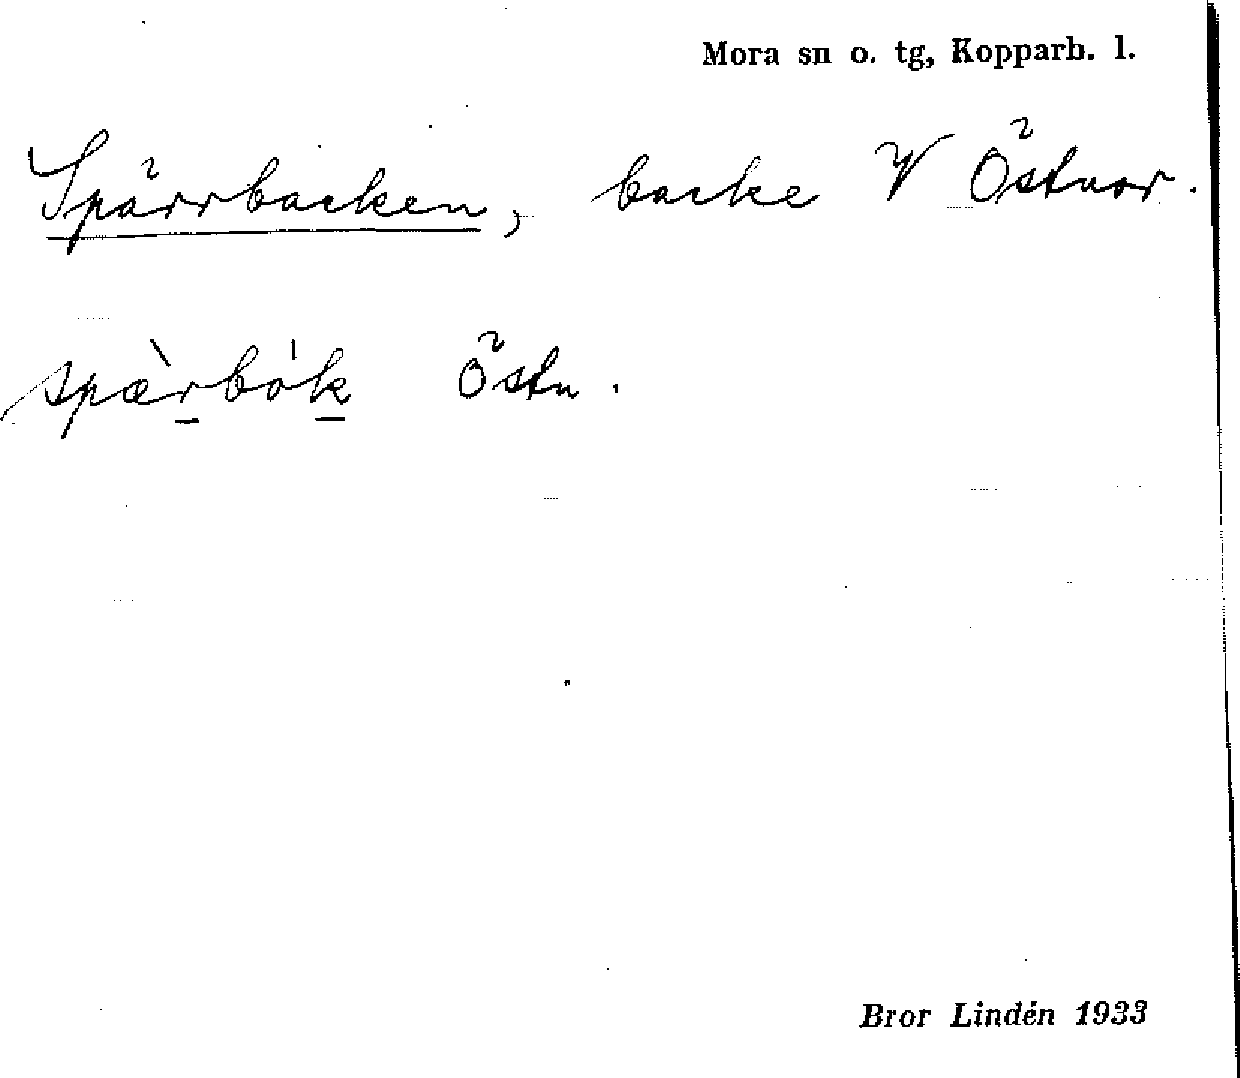 Mora sn o. tg, Kopparb. l.
Spärrbacken, backe V Östnor.
spæ̀r̲bók̲ Östn.
Bror Lindén 1933